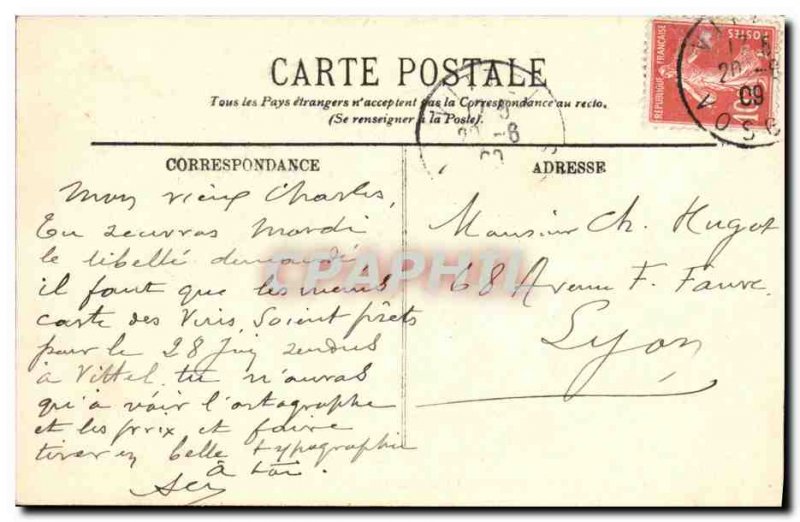 CARTE POSTALE
Tous les Pays étrangers n'acceptent pas la Correspondance au recto.
(Se renseigner à la Poste).
RÉPUBLIQUE FRANÇAISE
POSTES
10
20 -6
09
20 -6
CORRESPONDANCE
ADRESSE
Mon vieux Charles,
Tu recevras Mardi
le libellé demandé
il faut que les menus
carte des Vins, Soient prêts
pour le 28 Juin rendus
à Vittel, tu n'auras
qu'à voir l'ortographe
et les prix et faire
tirer en belle typographie
à toi.
Monsieur Ch. Hugot
68 Avenue F. Faure
Lyon
CPAPHIL